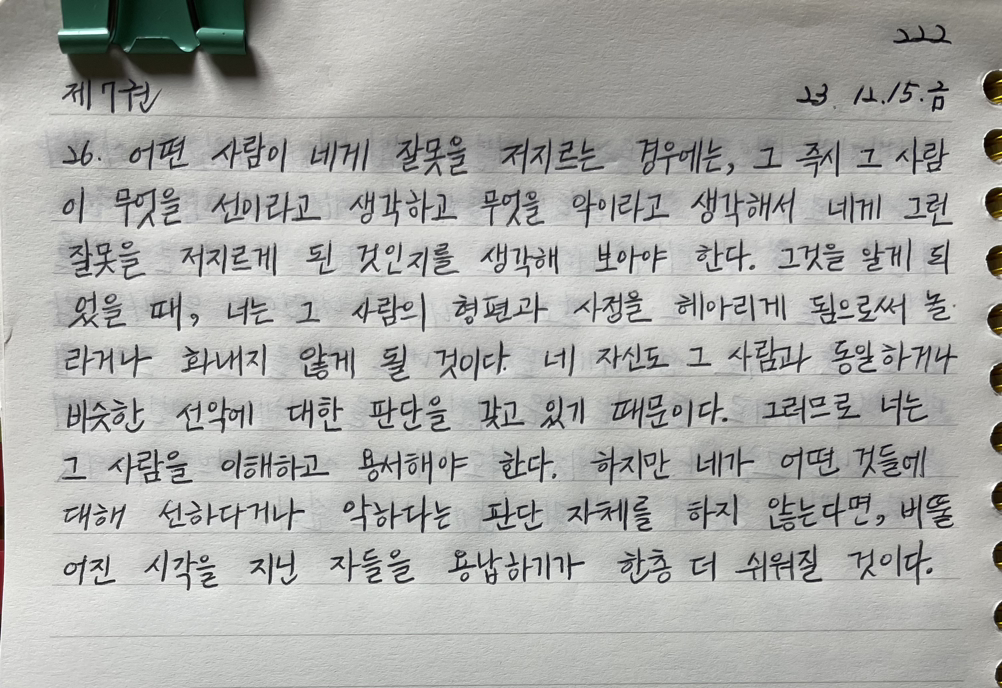 222
제7권 23. 12.15.금
26. 어떤 사람이 네게 잘못을 저지르는 경우에는, 그 즉시 그 사람
이 무엇을 선이라고 생각하고 무엇을 악이라고 생각해서 네게 그런
잘못을 저지르게 된 것인지를 생각해 보아야 한다. 그것을 알게 되
었을 때, 너는 그 사람의 형편과 사정을 헤아리게 됨으로써 놀
라거나 화내지 않게 될 것이다. 네 자신도 그 사람과 동일하거나
비슷한 선악에 대한 판단을 갖고 있기 때문이다. 그러므로 너는
그 사람을 이해하고 용서해야 한다. 하지만 네가 어떤 것들에
대해 선하다거나 악하다는 판단 자체를 하지 않는다면, 비뚤
어진 시각을 지닌 자들을 용납하기가 한층 더 쉬워질 것이다.